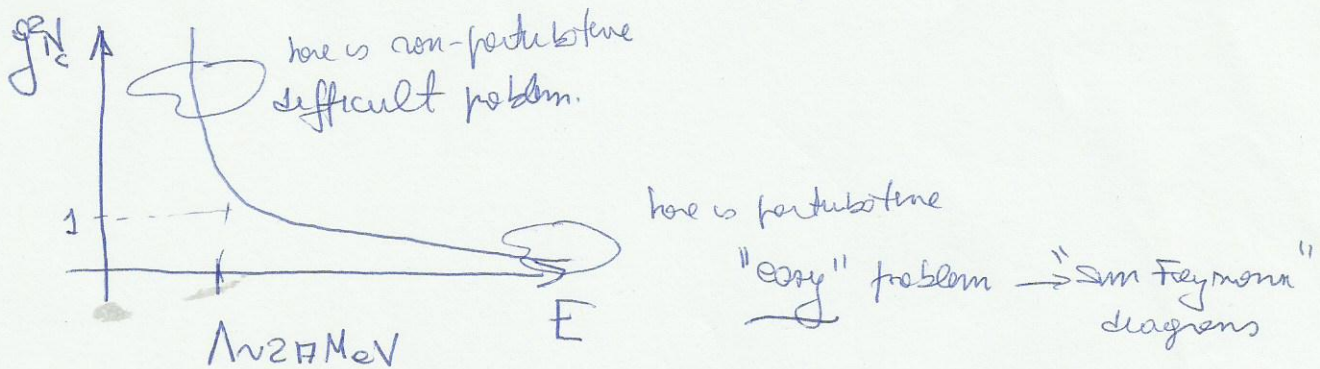 g²N_c
here is non-perturbative
difficult problem.
1
here is perturbative
"easy" problem → "sum Feynmann"
diagrams
E
Λ~2 MeV